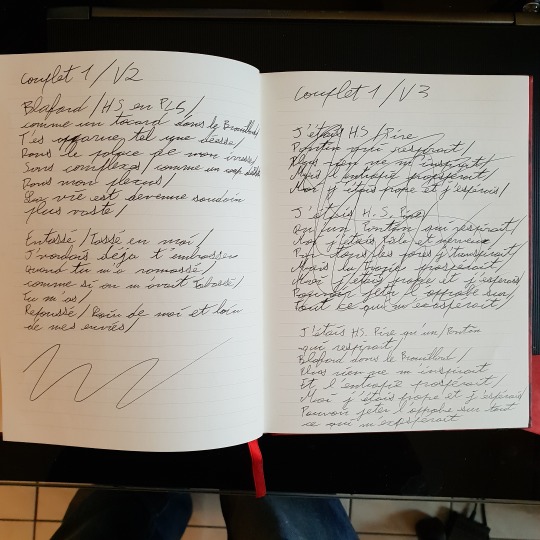 Couplet 1 / V2
Blafard / HS en PLS /
comme un tocard dans le Brouillard
T'es apparue tel une déesse /
Dans le palace de mon
Sans complexes / comme un coup
Dans mon plexus /
La vie est devenue soudain
plus vaste /
Entassé / Tassé en moi /
J'voulais déjà t'embrasser
Quand tu m'a ramassé /
comme si on m'avait Tabassé /
Tu m'as /
Repoussé / Loin de moi et loin
de mes envies /
Couplet 1 / V3
J'étais HS / Pire
Pantin qui respirait /
Plus rien ne m'inspirait /
Mais l'entropie prospérait /
Moi j'étais prope et j'espérais /
J'étais H.S. Pire
Qu'un Pantin qui respirait /
Moi j'étais sale et nerveux
Par tous les pores j'transpirait /
Mais la prospérait /
Moi j'étais prope et j'espérais
Pouvoir jeter l'opprobe sur /
Tout ce qui m'exaspérait /
J'étais HS. Pire qu'un / Pantin
qui respirait /
Blafard dans le Brouillard /
Plus rien ne m'inspirait
Et l'entropie prospérait /
Moi j'étais prope et j'espérais
Pouvoir jeter l'opprobe sur tout
ce qui m'exaspérait